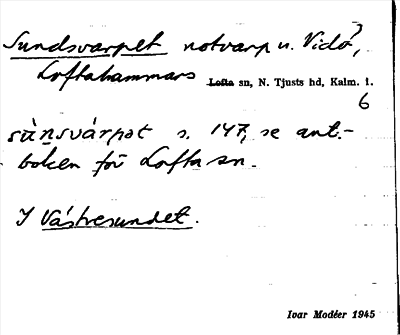 Sundsvarpet notvarp n. Vidö?,
Loftahammars Lofta sn, N. Tjusts hd, Kalm. l.
6
sùn̲svárpət s. 147, se ant.-
boken för Lofta sn.
I Västresundet.
Ivar Modéer 1945